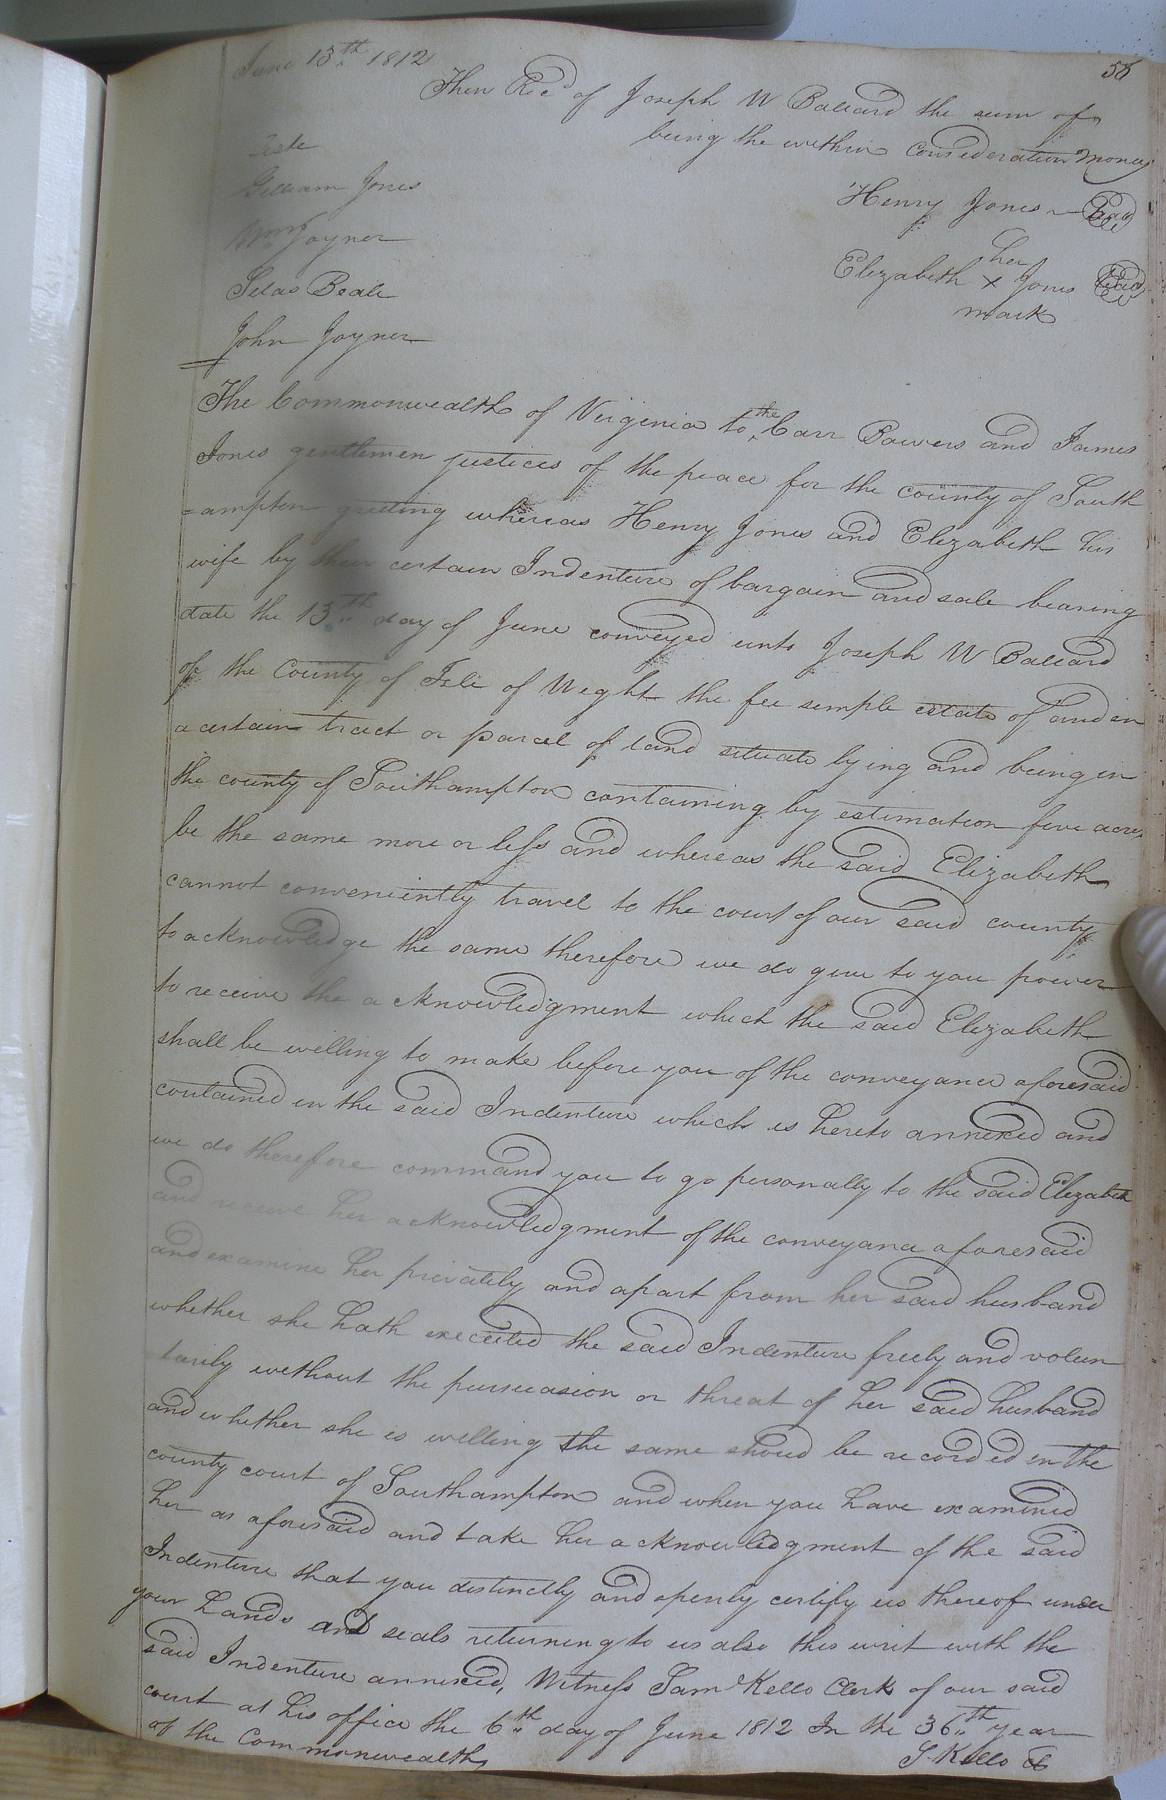 58
June 13th 1812
Then Recd of Joseph W Ballard the sum of
being the within consideration money
Teste
William Jones
Wm Joyner
Silas Beale
John Joyner
Henry Jones Seal
her
Elizabeth x Jones Seal
mark
The Commonwealth of Virginia to the Carr Bowers and James
Jones gentlemen justices of the peace for the county of South
=ampton greeting whereas Henry Jones and Elizabeth his
wife by their certain Indenture of bargain and sale bearing
date the 13th day of June conveyed unto Joseph W Ballard
of the County of Isle of Wight the fee simple estate of and in
a certain tract or parcel of land situate lying and being in
the county of Southampton containing by estimation five acres
be the same more or less and whereas the said Elizabeth
cannot conveniently travel to the court of our said county
to acknowledge the same therefore we do give to you power
to receive the acknowledgment which the said Elizabeth
shall be willing to make before you of the conveyance aforesaid
contained in the said Indenture which is hereto annexed and
we do therefore command you to go personally to the said Elizabeth
and receive her acknowledgment of the conveyance aforesaid
and examine her privately and apart from her said husband
whether she hath executed the said Indenture freely and volun
tarily without the persuasion or threat of her said husband
and whether she is willing the same should be recorded in the
county court of Southampton and when you have examined
her as aforesaid and take her acknowledgment of the said
Indenture that you distinctly and openly certify us thereof under
your hands and seals returning to us also this writ with the
said Indenture annexed, Witness Saml Kello Clerk of our said
court at his office the 6th day of June 1812 In the 36th year
of the Commonwealth
S. Kello Cl